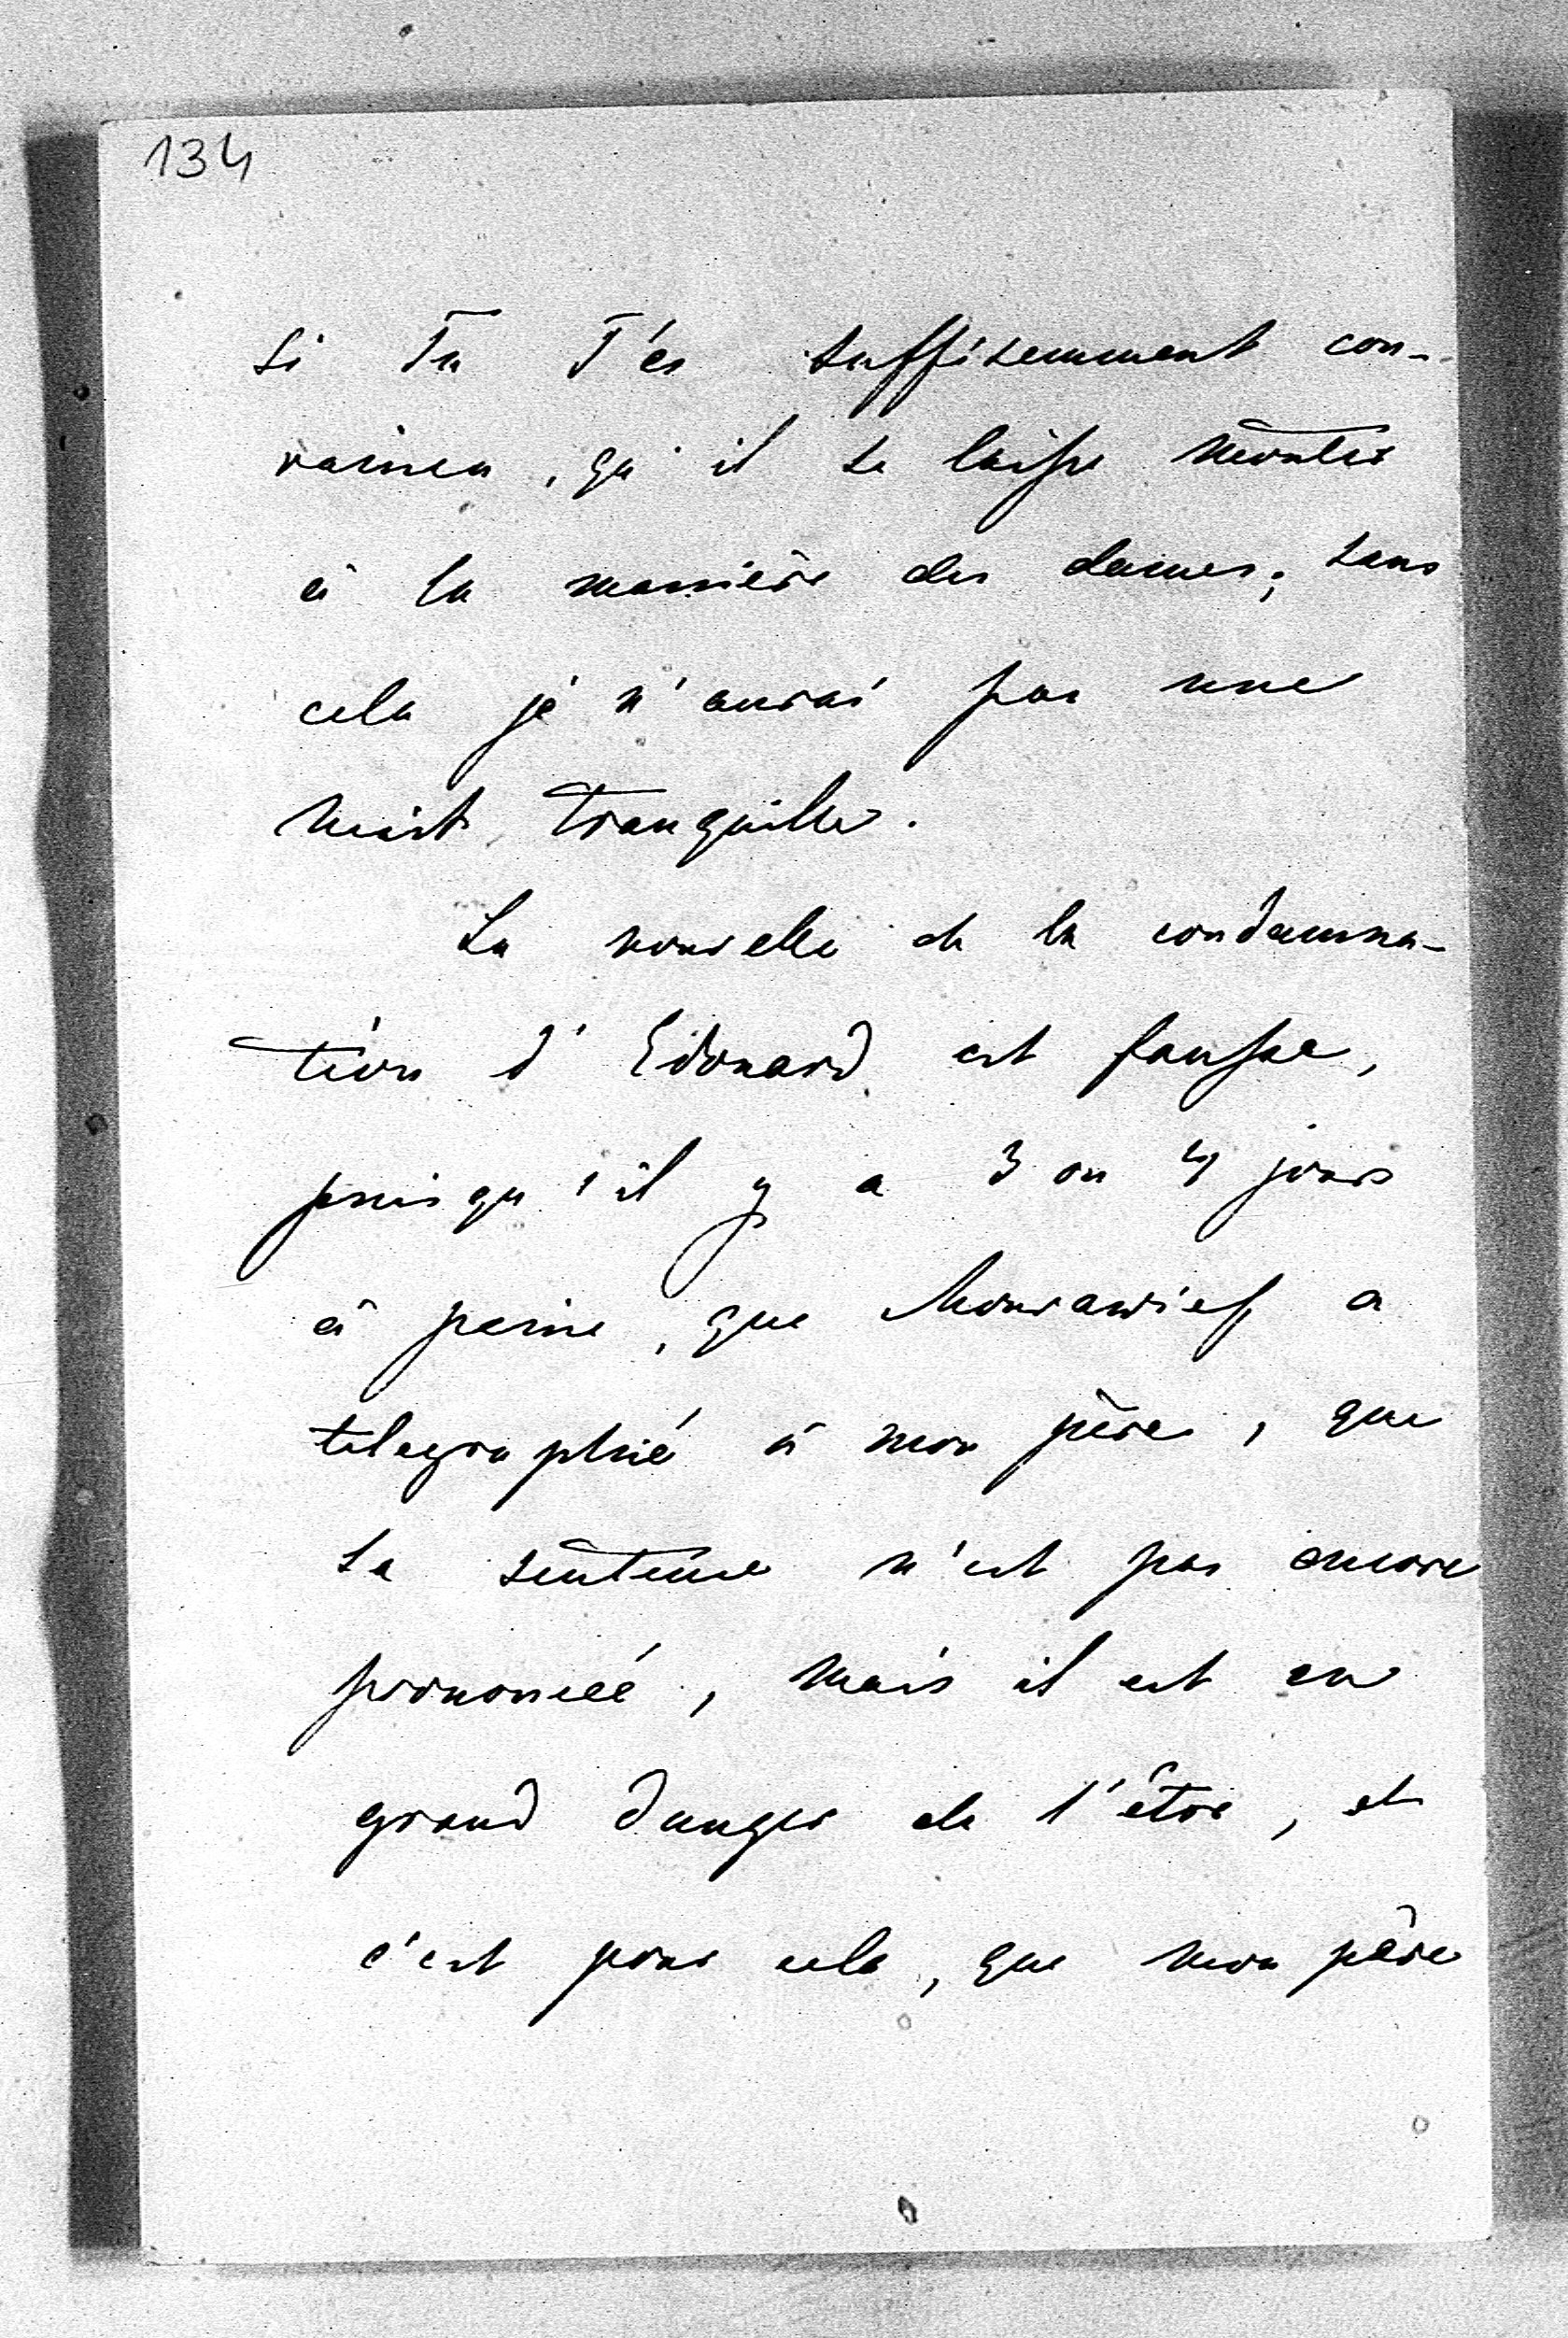 134
si Tu T'es suffisemment con-
vaincu, qu'il se laisse monter
à la manière des dames; sans
cela je n'aurai pas une
nuit tranquille.
La nouvelle de la condamna-
tion d'Edouard est fausse,
puisqu'il y a 3 ou 4 jours
à peine, que Mourawieff a
telegraphié à mon père, que
sa sentence n'est pas encore
prononcéé, mais il est en
grand danger de l'être, et
c'est pour cela, que mon père